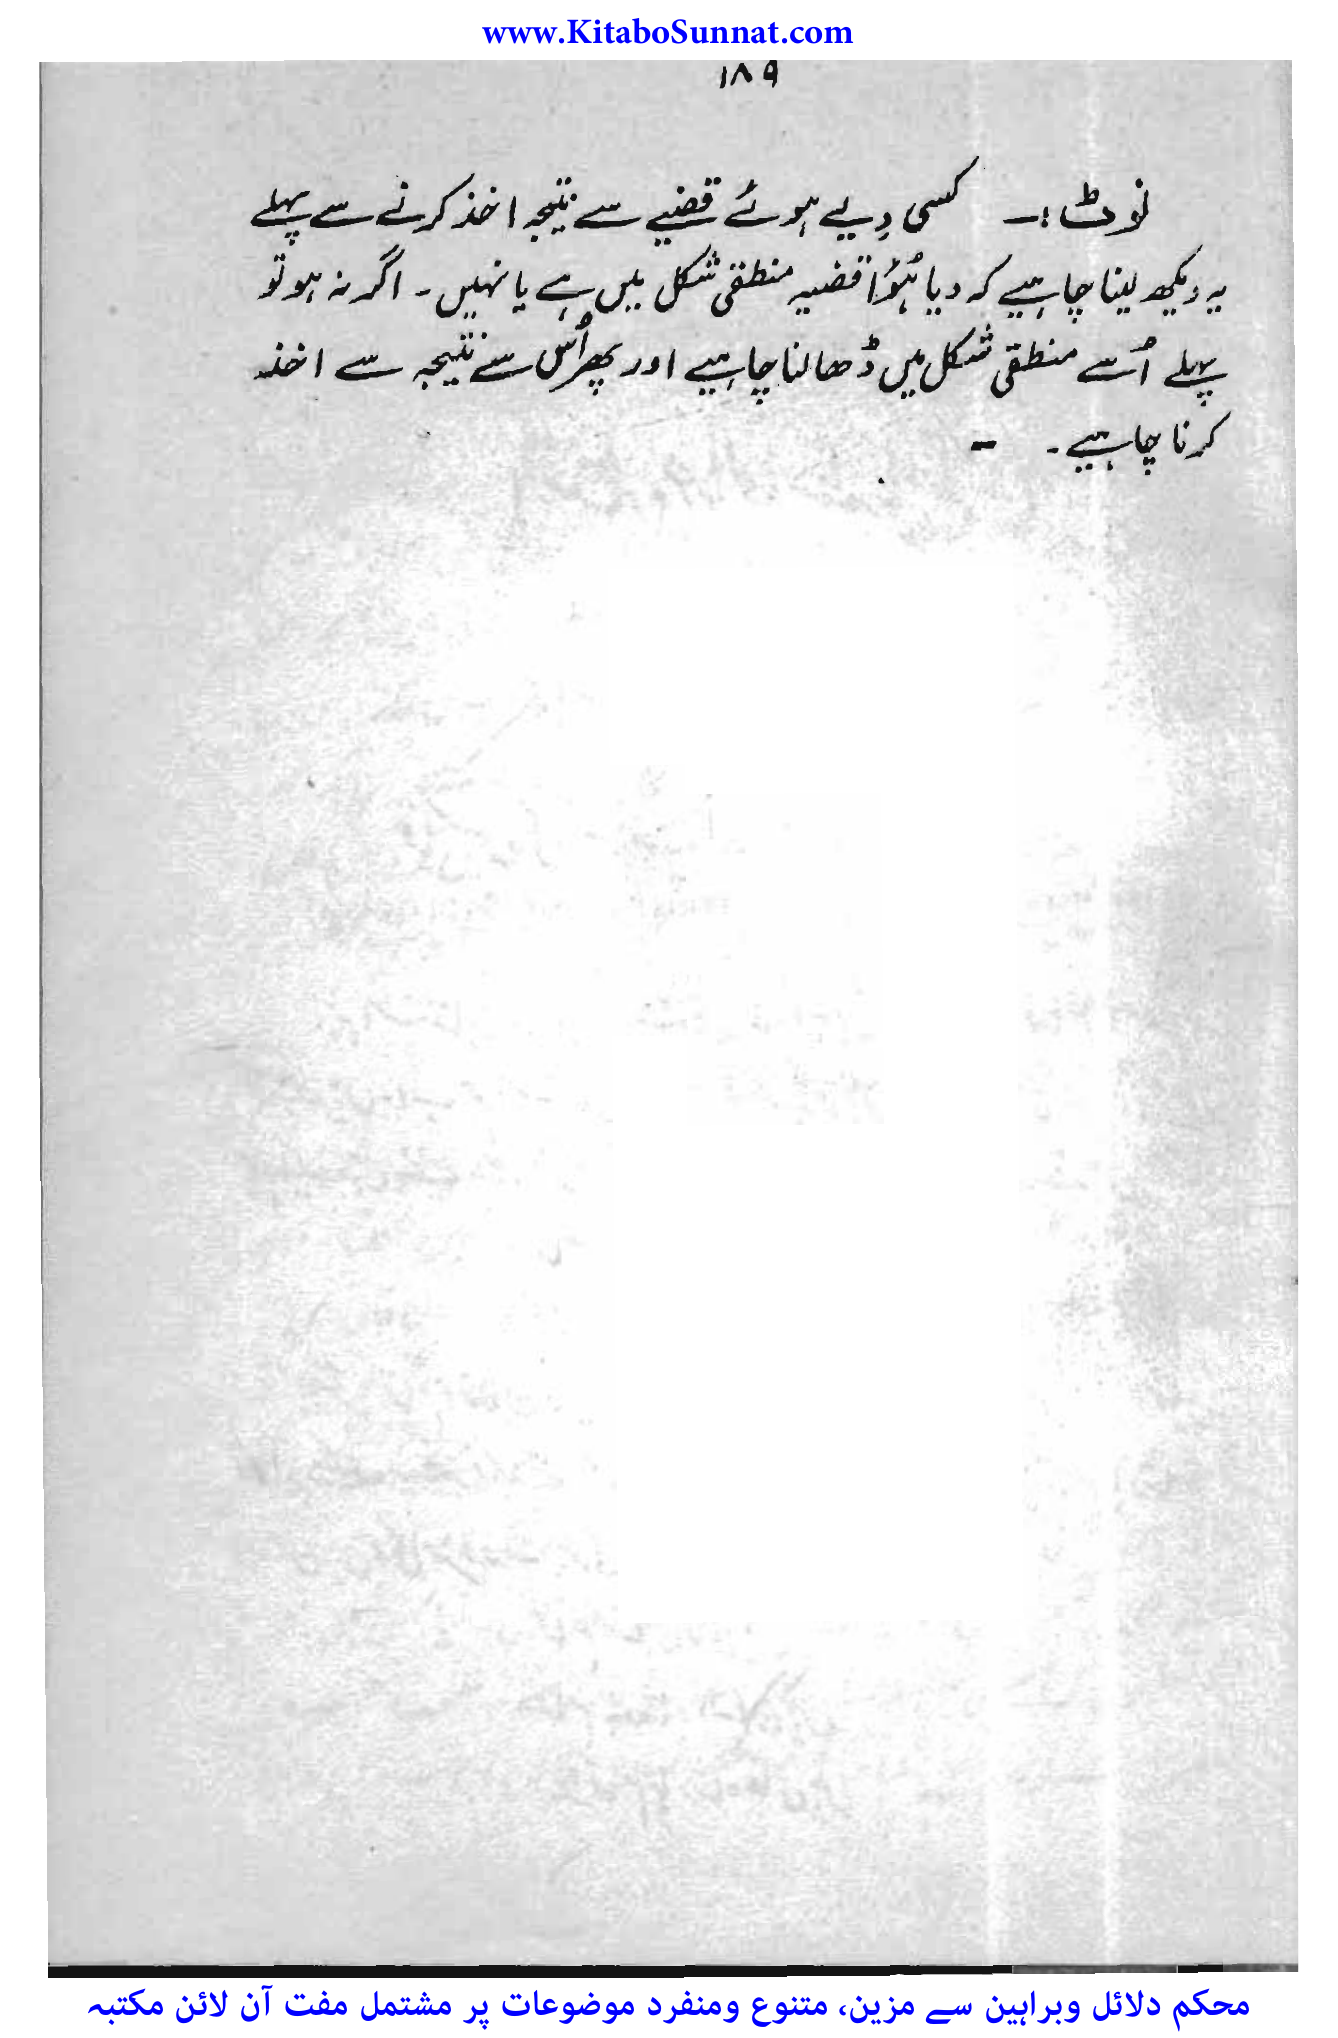 www.KitaboSunnat.com
۱۸۹
نوٹ :۔ کسی دِیے ہوئے قضیے سے نتیجہ اخذ کرنے سے پہلے
یہ دیکھ لینا چاہیے کہ دیا ہُؤا قضیہ منطقی شکل میں ہے یا نہیں۔ اگر نہ ہو تو
پہلے اُسے منطقی شکل میں ڈھالنا چاہیے اور پھر اُس سے نتیجہ سے اخذ
کرنا چاہیے۔ -
محکم دلائل وبراہین سے مزین، متنوع ومنفرد موضوعات پر مشتمل مفت آن لائن مکتبہ